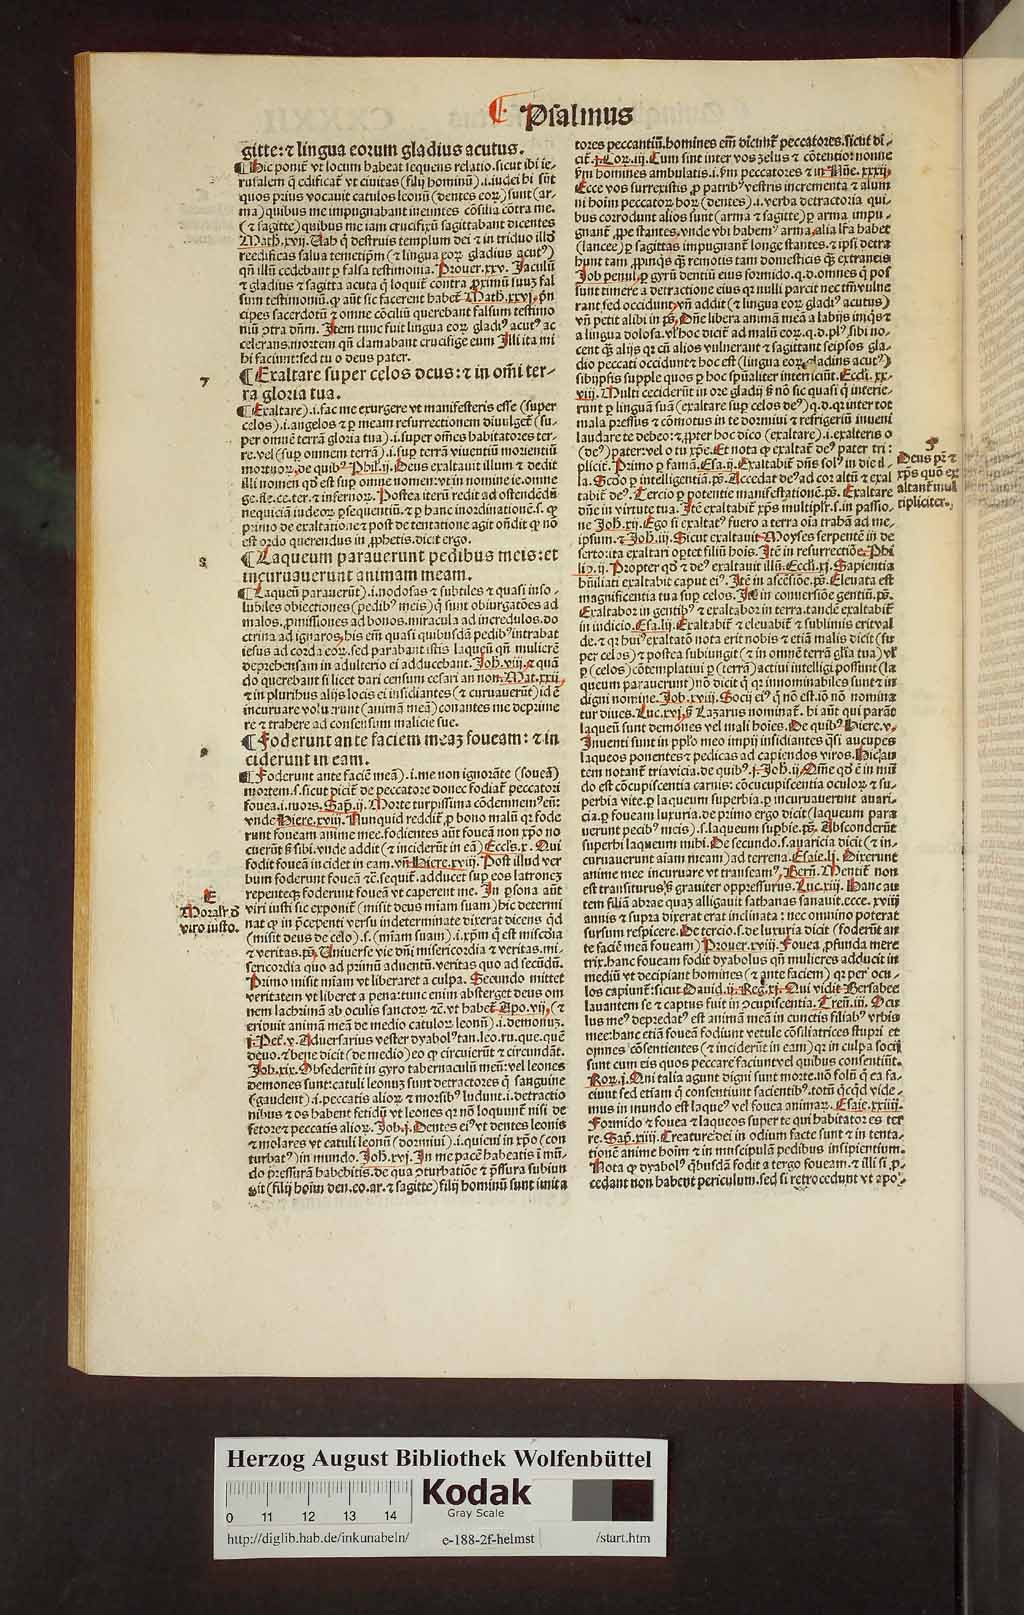 Psalmus
gitte: ⁊ lingua eorum gladius acutus.
¶ Hic ponit̃ vt locum habeat sequens relatio. sicut ibi ie-
rusalem q̃ edificat̃ vt ciuitas (filij hominũ) .i. iudei hi sũt
quos prius vocauit catulos leonũ (dentes eoꝝ) sunt (ar-
ma) quibus me impugnabant ineuntes cõsilia cõtra me.
(⁊ sagitte) quibus me iam crucifigẽ sagittabant dicentes
Math. xxvij. Uah q̃ destruis templum dei ⁊ in triduo illđ
reedificas salua temetip̃m (⁊ lingua eoꝝ gladius acutꝰ)
qñ illũ cedebant ꝑ falsa testimonia. Prouer. xxv. Jaculũ
⁊ gladius ⁊ sagitta acuta q̃ loquit̃ contra ꝓximũ suuꝫ fal
sum testimoniũ. ꝙ aũt sic facerent habet̃ Math. xxvj. pñ
cipes sacerdotũ ⁊ omne cõciliũ querebant falsum testimo
niũ ɔtra dñm. Jtem tunc fuit lingua eoꝝ gladiꝰ acutꝰ ac
celerans mortem qñ clamabant crucifige eum Jlli ita mi
hi faciunt: sed tu o deus pater.
7
¶ Exaltare super celos deus: ⁊ in om̃i ter-
ra gloria tua.
¶ Exaltare) .i. fac me exurgere vt manifesteris esse (super
celos) .i. angelos ⁊ ꝑ meam resurrectionem diuulget̃ (su-
per omnẽ terrã gloria tua) .i. super om̃es habitatores ter-
re. vel (sup omnem terrã) .i. sup terrã viuentiũ morientiũ
mortuoꝝ. de quibꝰ Phil. ij. Deus exaltauit illum ⁊ dedit
illi nomen qđ est sup omne nomen: vt in nomine ie. omne
ge. fle. ce. ter. ⁊ infernoꝝ. Postea iterũ redit ad ostendẽdũ
nequiciã iudeoꝝ ꝑsequentiũ. ⁊ ꝑ hanc inordinationẽ .s. ꝙ
primo de exaltatione ⁊ post de tentatione agit oñdit ꝙ nõ
est ordo querendus in ꝓphetis. dicit ergo.
8
¶ Laqueum parauerunt pedibus meis: et
incuruauerunt animam meam.
¶ Laqueũ parauerũt) .i. nodosas ⁊ subtiles ⁊ quasi inso-
lubiles obiectiones (pedibꝰ meis) q̃ sunt obiurgatões ad
malos. ꝓmissiones ad bonos. miracula ad incredulos. do
ctrina ad ignaros, his em̃ quasi quibusdã pedibꝰ intrabat
iesus ad corda eoꝝ. sed parabant istis laqueũ qñ mulierẽ
deprehensam in adulterio ei adducebant. Joh. viij. ⁊ quã
do querebant si licet dari censum cesari an non. Mat. xxij,
⁊ in pluribus alijs locis ei insidiantes (⁊ curuauerũt) id ẽ
incuruare voluerunt (animã meã) conantes me deprime
re ⁊ trahere ad consensum malicie sue.
9
¶ Foderunt ante faciem meaꝫ foueam: ⁊ in
ciderunt in eam.
¶ Foderunt ante faciẽ meã) .i. me non ignorãte (foueã)
mortem .s. sicut dicit̃ de peccatore donec fodiat̃ peccatori
fouea .i. mors. Sap. ij. Morte turpissima cõdemnemꝰ em̃:
vnde Hiere. xviij. Nunquid reddit̃ ꝓ bono malũ qꝛ fode
runt foueam anime mee. fodientes aũt foueã non xp̃o no
cuerũt s̃ sibi. vnde addit (⁊ inciderũt in eã) Eccls. x. Qui
fodit foueã incidet in eam. vñ Hiere. xviij. Post illud ver
bum foderunt foueã ⁊c. sequit̃. adducet sup eos latroneꝫ
repenteqꝫ foderunt foueã vt caperent me. Jn ꝑsona aũt
viri iusti sic exponit̃ (misit deus miam suam) hic determi
nat ꝙ in p̃cedenti versu indeterminate dixerat dicens qđ
(misit deus de celo) .s. (miam suam) .i. xp̃m q̃ est miscdia
⁊ veritas. pš. Uniuerse vie dñi misericordia ⁊ veritas. mi-
sericordia quo ad primũ aduentũ. veritas quo ad secũdũ.
Primo misit miam vt liberaret a culpa. Secundo mittet
veritatem vt liberet a pena: tunc enim absterget deus om
nem lachrimã ab oculis sanctoꝝ ⁊c̃. vt habet̃ Apo. vij. (⁊
eripuit animã meã de medio catuloꝝ leonũ) .i. demonuꝫ.
j. Pet̃. v. Aduersarius vester dyabolꝰ tan. leo. ru. que. quẽ
deuo. ⁊ bene dicit (de medio) eo ꝙ circuierũt ⁊ circundãt.
Job. xix. Obsederũt in gyro tabernaculũ meũ: vel leones
demones sunt: catuli leonuꝫ sunt detractores q̃ sanguine
(gaudent) .i. peccatis alioꝝ ⁊ morsibꝰ ludunt .i. detractio
nibus ⁊ os habent fetidũ vt leones qꝛ nõ loquunt̃ nisi de
fetore ⁊ peccatis alioꝝ. Job. j. Dentes eiꝰ vt dentes leonis
⁊ molares vt catuli leonũ (dormiui) .i. quieui in xp̃o (con
turbatꝰ) in mundo. Joh. xvj. Jn me pacẽ habeatis i mũ-
do p̃ssurã habebitis. de qua ɔturbatiõe ⁊ p̃ssura subiun
git (filij hoĩm den. eo. ar. ⁊ sagitte) filij hominũ sunt imita
E
Moralr̃ đ
viro iusto.
tores peccantiũ. homines em̃ dicunt̃ peccatores. sicut di-
cit̃. j. Cor. iij. Cum sint inter vos zelus ⁊ cõtentio: nonne
s̃m homines ambulatis .i. s̃m peccatores ⁊ in Nũe. xxxij.
Ecce vos surrexistis ꝓ patribꝰ vestris incrementa ⁊ alum
ni hoĩm peccatoꝝ hoꝝ (dentes) .i. verba detractoria qui-
bus corrodunt alios sunt (arma ⁊ sagitte) ꝑ arma impu-
gnant̃ ꝓpe stantes. vnde vbi habemꝰ arma, alia lr̃a habet
(lancee) ꝑ sagittas impugnant̃ longe stantes. ⁊ ipsi detra
hunt tam ꝓpinqs q̃ remotis tam domesticis q̃ extraneis
Job penul. ꝑ gyrũ dentiũ eius formido. q.d. omnes q̃ pos
sunt timere a detractione eius qꝛ nulli parcit nec tm̃ vulne
rant sed occidunt, vñ addit (⁊ lingua eoꝝ gladiꝰ acutus)
vñ petit alibi in pš. Dñe libera animã meã a labijs iniqs ⁊
a lingua dolosa. vl̃ hoc dicit̃ ad malũ eoꝝ. q.d. plꝰ sibi no-
cent q̃ alijs qꝛ cũ alios vulnerant ⁊ sagittant seipsos gla-
dio peccati occidunt ⁊ hoc est (lingua eoꝝ gladius acutꝰ)
sibijpsis supple quos ꝑ hoc sp̃ualiter interficiũt. Eccli. xx-
viij. Multi ceciderũt in ore gladij s̃ nõ sic quasi q̃ interie-
runt ꝑ linguã suã (exaltare sup celos deꝰ) q.d. qꝛ inter tot
mala pressus ⁊ cõmotus in te dormiui ⁊ refrigeriũ inueni
laudare te debeo: ⁊, ꝓpter hoc dico (exaltare) .i. exalteris o
(deꝰ) pater: vel o tu xp̃e. Et nota ꝙ exaltat̃ deꝰ pater tri:
plicit̃. Primo ꝑ famã. Esa. ij. Exaltabit̃ dñs solꝰ in die il-
la. Scđo ꝑ intelligentiã. pš. Accedat deꝰ ad cor altũ ⁊ exal
tabit̃ deꝰ. Tercio ꝑ potentie manifestationẽ. pš. Exaltare
dñe in virtute tua. Jtẽ exaltabit̃ xp̃s multiplr̃ .s. in passio-
ne Joh. xij. Ego si exaltatꝰ fuero a terra oĩa trahã ad me-
ipsum. ⁊ Joh. iij. Sicut exaltauit Moyses serpentẽ in de
serto: ita exaltari optet filiũ hois. Jtẽ in resurrectiõe. Phi
lip. ij. Propter qđ ⁊ deꝰ exaltauit illũ. Eccli. xj. Sapientia
hũiliati exaltabit caput eiꝰ. Jtẽ in ascẽsiõe. pš. Eleuata est
magnificentia tua sup celos. Jtẽ in conuersiõe gentiũ. pš.
Exaltabor in gentibꝰ ⁊ exaltabor in terra. tandẽ exaltabit̃
in iudicio. Esa. lij. Exaltabit̃ ⁊ eleuabit̃ ⁊ sublimis erit val
de. ⁊ qꝛ huiꝰ exaltatõ nota erit nobis ⁊ etiã malis dicit (su
per celos) ⁊ postea subiungit (⁊ in omnẽ terrã gl̃ia tua) vl̃
ꝑ (celos) cõtemplatiui ꝑ (terrã) actiui intelligi possunt (la
queum parauerunt) nõ dicit q̃ qꝛ innominabiles sunt ⁊ in
digni nomine. Job. xviij. Socij eiꝰ q̃ nõ est. iõ nõ nomina
tur diues. Luc. xvj. s̃ Lazarus nominat̃. hi aũt qui parãt
laqueũ sunt demones vel mali hoies. De quibꝰ Hiere. v.
Jnuenti sunt in pplo meo impij insidiantes q̃si aucupes
laqueos ponentes ⁊ pedicas ad capiendos viros. Hic au
tem notant̃ tria vicia. de quibꝰ. j. Joh. ij. Om̃e qđ ẽ in mũ
do est cõcupiscentia carnis: cõcupiscentia oculoꝝ ⁊ su-
perbia vite. ꝑ laqueum superbia. ꝑ incuruauerunt auari-
cia. ꝑ foueam luxuria. de primo ergo dicit (laqueum para
uerunt pecibꝰ meis) .s. laqueum supbie. pš. Absconderũt
superbi laqueum mihi. De secundo .s. auaricia dicit (⁊ in-
curuauerunt aĩam meam) ad terrena. Esaie. lj. Dixerunt
anime mee incuruare vt transeamꝰ. Bern̄. Mentit̃ non
est transiturus s̃ grauiter oppressurus. Luc. xiij. Hanc au
tem filiã abrae quaꝫ alligauit sathanas sanauit. ecce. xviij
annis ⁊ supra dixerat erat inclinata: nec omnino poterat
sursum respicere. De tercio .s. de luxuria dicit (foderũt an
te faciẽ meã foueam) Prouer. xviij. Fouea ꝓfunda mere
trix. hanc foueam fodit dyabolus qñ mulieres adducit in
mediũ vt decipiant homines (⁊ ante faciem) qꝛ per ocu-
los capiunt̃: sicut Dauid. ij. Reg. xj. Qui vidit Bersabee
lauantem se ⁊ captus fuit in ɔcupiscentia. Tren̄. iij. Ocu
lus meꝰ depredatꝰ est animã meã in cunctis filiabꝰ vrbis
mee: hanc etiã foueã fodiunt vetule cõsiliatrices stupri et
omnes cõsentientes (⁊ inciderũt in eam) qꝛ in culpa socij
sunt cum eis quos peccare faciunt vel quibus consentiũt.
Roꝝ. j. Qui talia agunt digni sunt morte. nõ solũ q̃ ea fa-
ciunt sed etiam q̃ consentiunt facientibꝰ. totũ q̃cqđ vide-
mus in mundo est laqueꝰ vel fouea animaꝝ. Esaie. xxiiij.
Formido ⁊ fouea ⁊ laqueus super te qui habitator es ter
re. Sap. xiiij. Creature dei in odium facte sunt ⁊ in tenta-
tionẽ anime hoĩm ⁊ in muscipulã pedibus insipientium.
Nota ꝙ dyabolꝰ q̃busdã fodit a tergo foueam. ⁊ illi si ꝓ-
cedant non habent periculum. sed si retrocedunt vt apo-
Deus pr̃ ⁊
xp̃s quo ex
altant̃ mul
tipliciter.
Herzog August Bibliothek Wolfenbüttel
0 11 12 13 14
Kodak
Gray Scale
http://diglib.hab.de/inkunabeln/ e-188-2f-helmst /start.htm